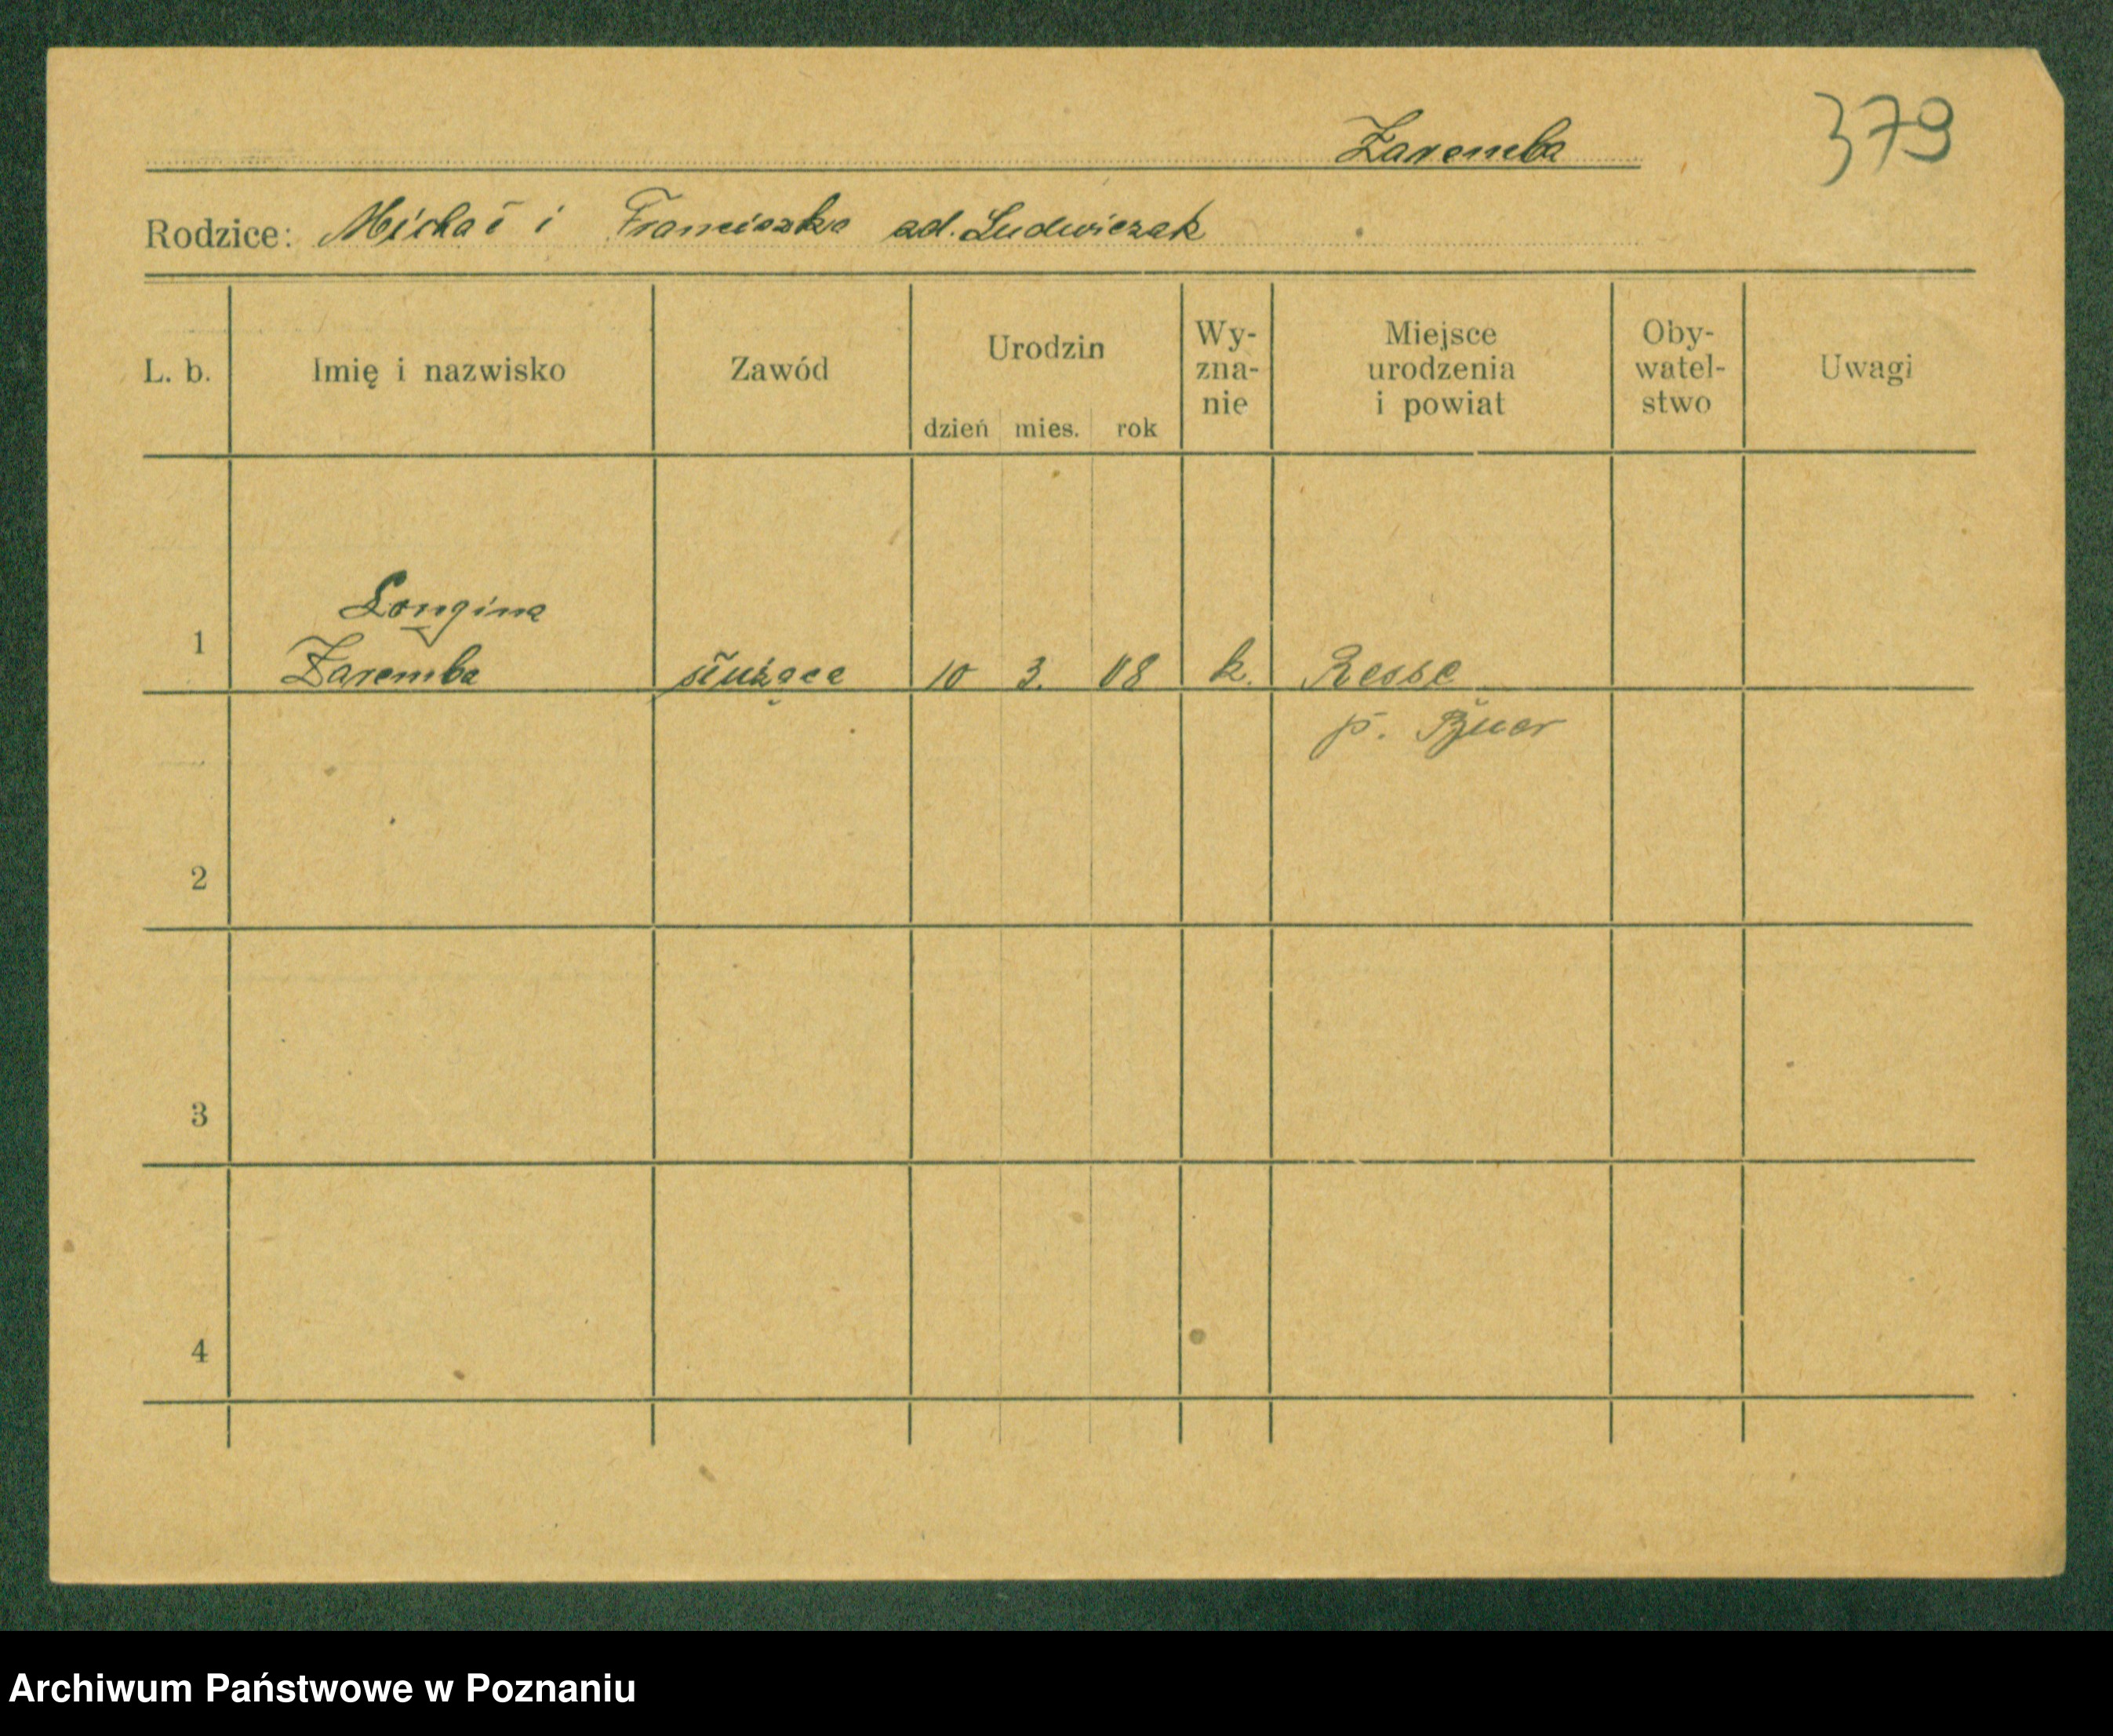 379
Zaremba
Rodzice: Michał i Franciszka ad. Ludwiczak
L. b. Imię i nazwisko Zawód Urodzin dzień mies. rok Wy-zna-nie Miejsce urodzenia i powiat Oby-watel-stwo Uwagi
Longina
1 Zaremba służąca 10 3. 08 k. Resse
p. Buer
2
3
4
Archiwum Państwowe w Poznaniu